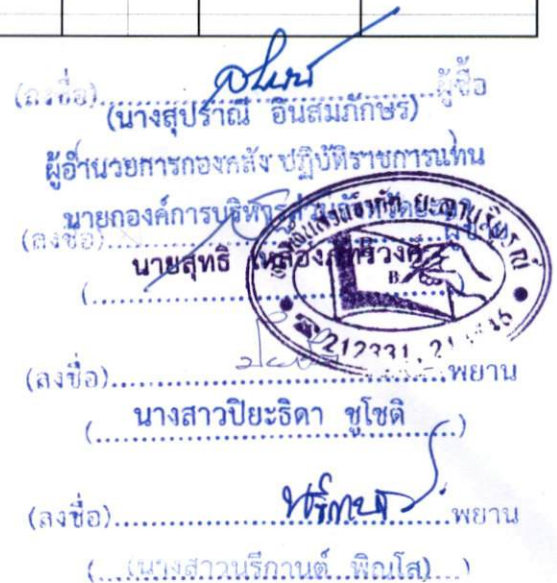 (ลงชื่อ)..............................ผู้ซื้อ
(นางสุปราณี อินสมภักษร)
ผู้อำนวยการกองคลัง ปฏิบัติราชการแทน
นายกองค์การบริหารส่วนจังหวัดยะลา
(ลงชื่อ)..............................ผู้ขาย
นายสุทธิ
(..............................
B
212331, 21
(ลงชื่อ)..............................พยาน
(..นางสาวปิยะธิดา ชูโชติ..)
(ลงชื่อ)..............................พยาน
(....(นางสาวนรีกานต์ พิณโส)....)